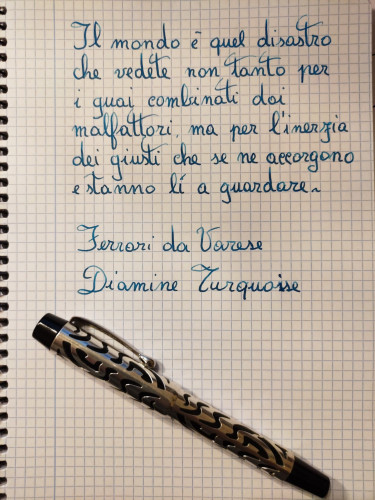 Il mondo è quel disastro
che vedete non tanto per
i guai combinati dai
malfattori, ma per l'inerzia
dei giusti che se ne accorgono
e stanno lì a guardare~
Ferrari da Varese
Diamine Turquoise